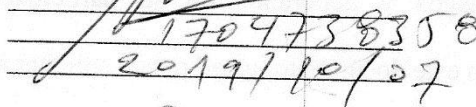 1704738358
2019/10/07